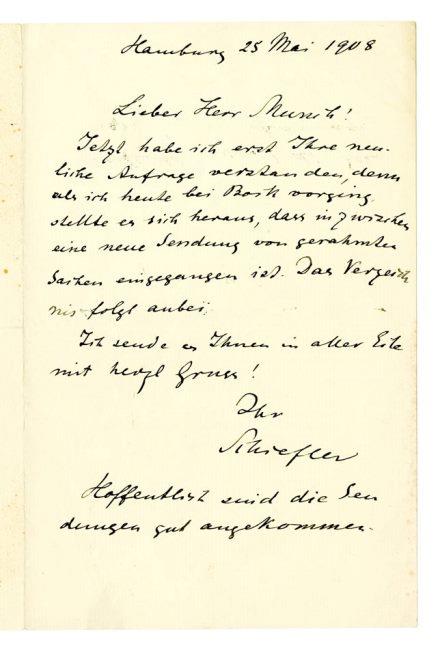 Hamburg 25 Mai 1908
Lieber Herr Munch!
Jetzt habe ich erst Ihre neu-
liche Anfrage verstanden, denn
als ich heute bei Bock vorging
stellte es sich heraus, dass inzwischen
eine neue Sendung von gerahmten
Sachen eingegangen ist. Das Verzeich
nis folgt anbei.
Ich sende es Ihnen in aller Eile
mit herzl Gruss!
Ihr
Schiefler
Hoffentlich sind die Sen
dungen gut angekommen.